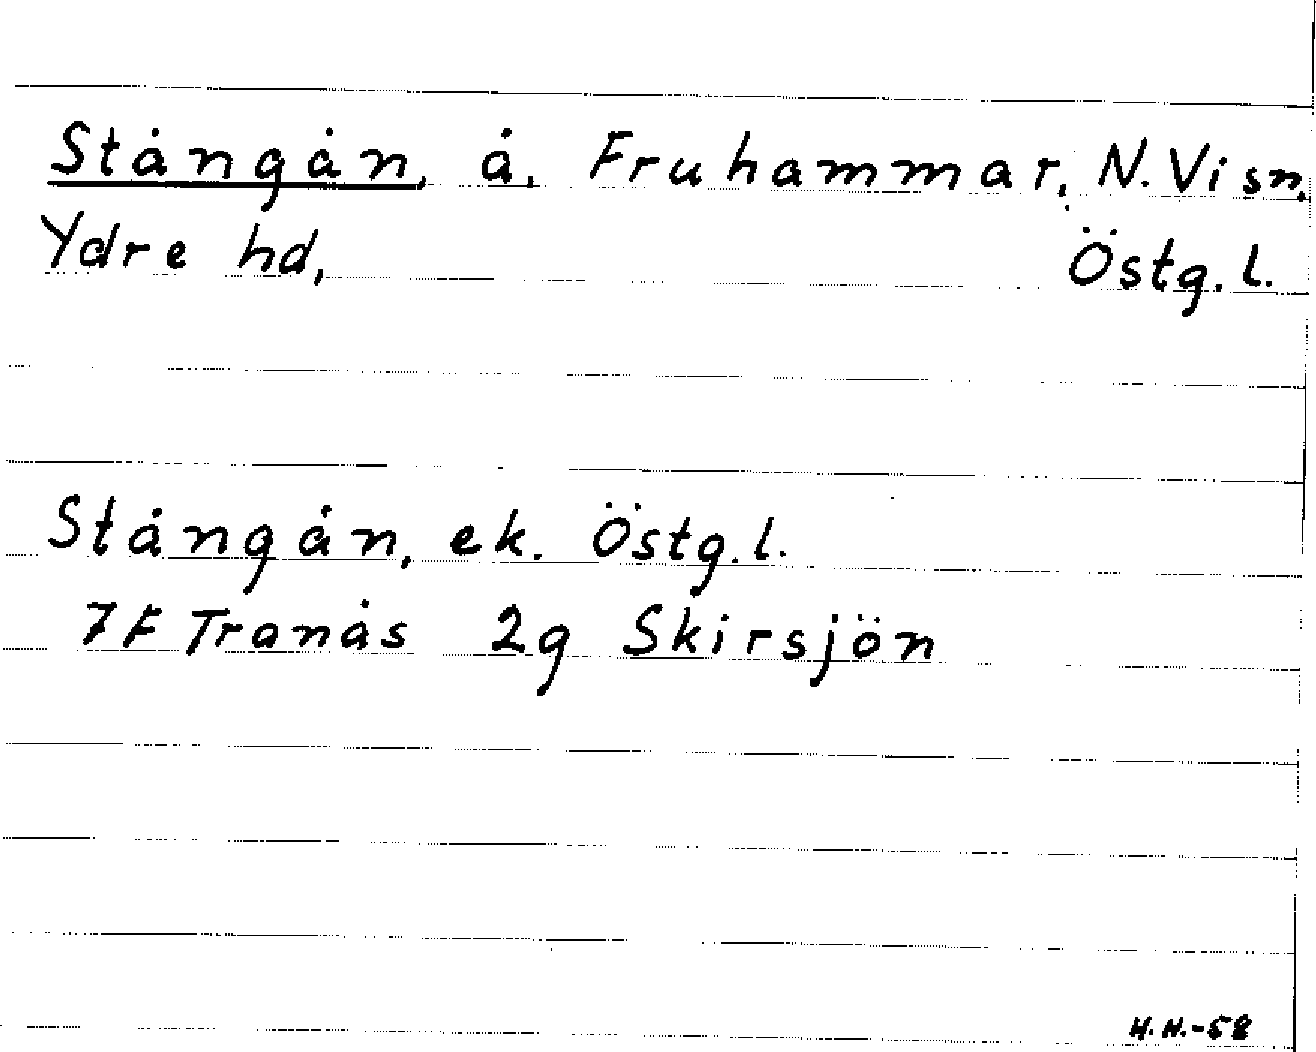 Stångån, å, Fruhammar, N. Visn.
Ydre hd, Östg. l.
Stångån, ek. Östg. l.
7F Tranås 2g Skirsjön
H. N. -58